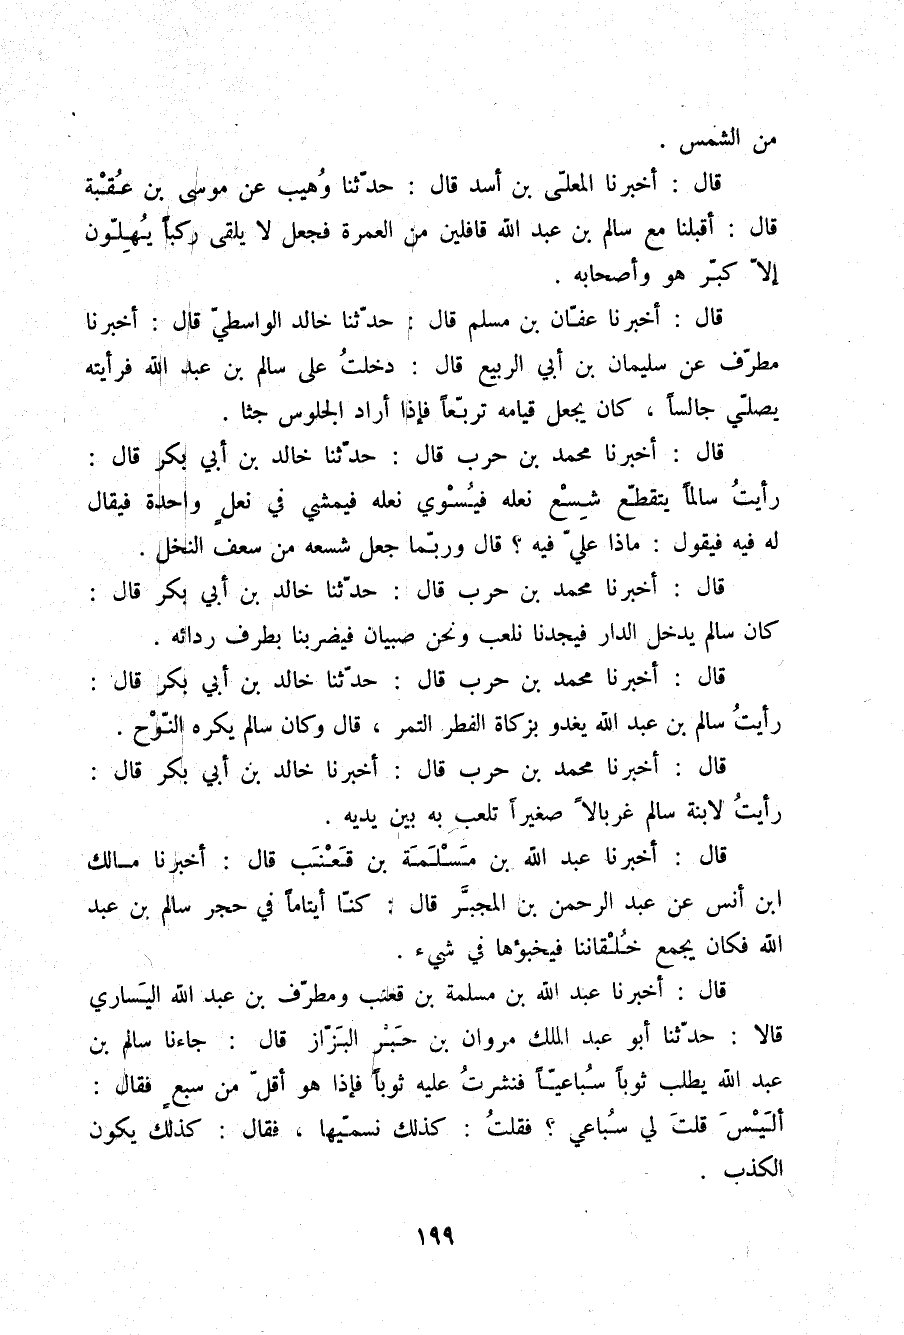 من الشمس .
قال : أخبرنا المعلّى بن أسد قال : حدّثنا وُهيب عن موسى بن عُقْبة
قال : أقبلنا مع سالم بن عبد الله قافلين من العمرة فجعل لا يلقى ركباً يُهِلّون
إلاّ كبّر هو وأصحابه .
قال : أخبرنا عفّان بن مسلم قال : حدّثنا خالد الواسطيّ قال : أخبرنا
مطرّف عن سليمان بن أبي الربيع قال : دخلتُ على سالم بن عبد الله فرأيته
يصلّي جالساً ، كان يجعل قيامه تربّعاً فإذا أراد الجلوس جثا .
قال : أخبرنا محمد بن حرب قال : حدّثنا خالد بن أبي بكر قال :
رأيتُ سالماً يتقطّع شِسْع نعله فيُسْوي نعله فيمشي في نعلٍ واحدة فيقال
له فيه فيقول : ماذا عليّ فيه ؟ قال وربّما جعل شسعه من سعف النخل .
قال : أخبرنا محمد بن حرب قال : حدّثنا خالد بن أبي بكر قال :
كان سالم يدخل الدار فيجدنا نلعب ونحن صبيان فيضربنا بطرف ردائه .
قال : أخبرنا محمد بن حرب قال : حدّثنا خالد بن أبي بكر قال :
رأيتُ سالم بن عبد الله يغدو بزكاة الفطر التمر ، قال وكان سالم يكره النّوْح .
قال : أخبرنا محمد بن حرب قال : أخبرنا خالد بن أبي بكر قال :
رأيتُ لابنة سالم غربالاً صغيراً تلعب به بين يديه .
قال : أخبرنا عبد الله بن مَسْلَمَة بن قَعْنَب قال : أخبرنا مالك
ابن أنس عن عبد الرحمن بن المجبَّر قال : كنّا أيتاماً في حجر سالم بن عبد
الله فكان يجمع خُلْقاننا فيخبؤها في شيء .
قال : أخبرنا عبد الله بن مسلمة بن قعنب ومطرّف بن عبد الله اليَساري
قالا : حدّثنا أبو عبد الملك مروان بن حَبْر البَزّاز قال : جاءنا سالم بن
عبد الله يطلب ثوباً سُباعيّاً فنشرتُ عليه ثوباً فإذا هو أقلّ من سبعٍ فقال :
ألَيْسَ قلتَ لي سُباعي ؟ فقلتُ : كذلك نسمّيها ، فقال : كذلك يكون
الكذب .
١٩٩